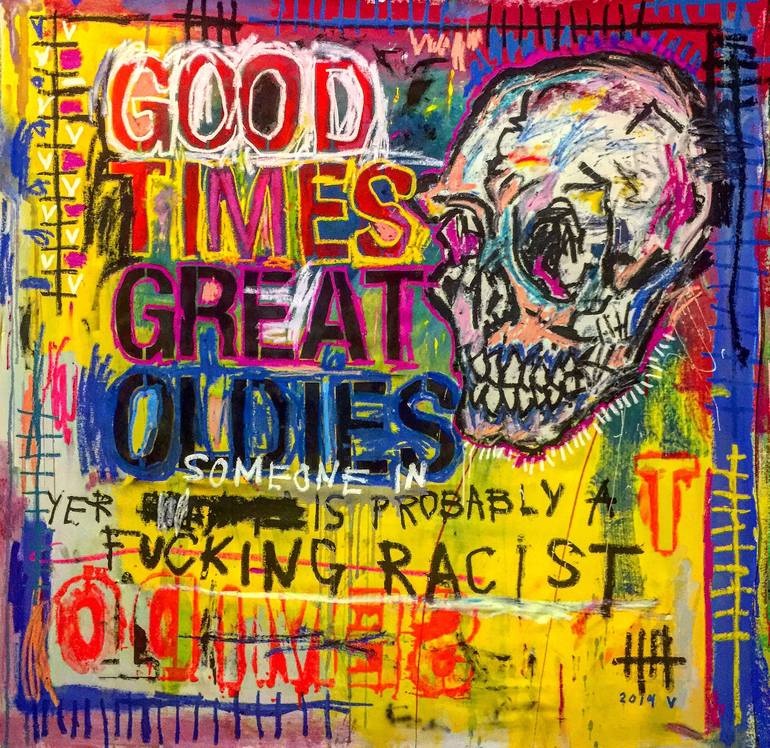 GOOD
TIMES
GREAT
OLDIES
SOMEONE IN
YER IS PROBABLY A
T
FUCKING RACIST
2014 V